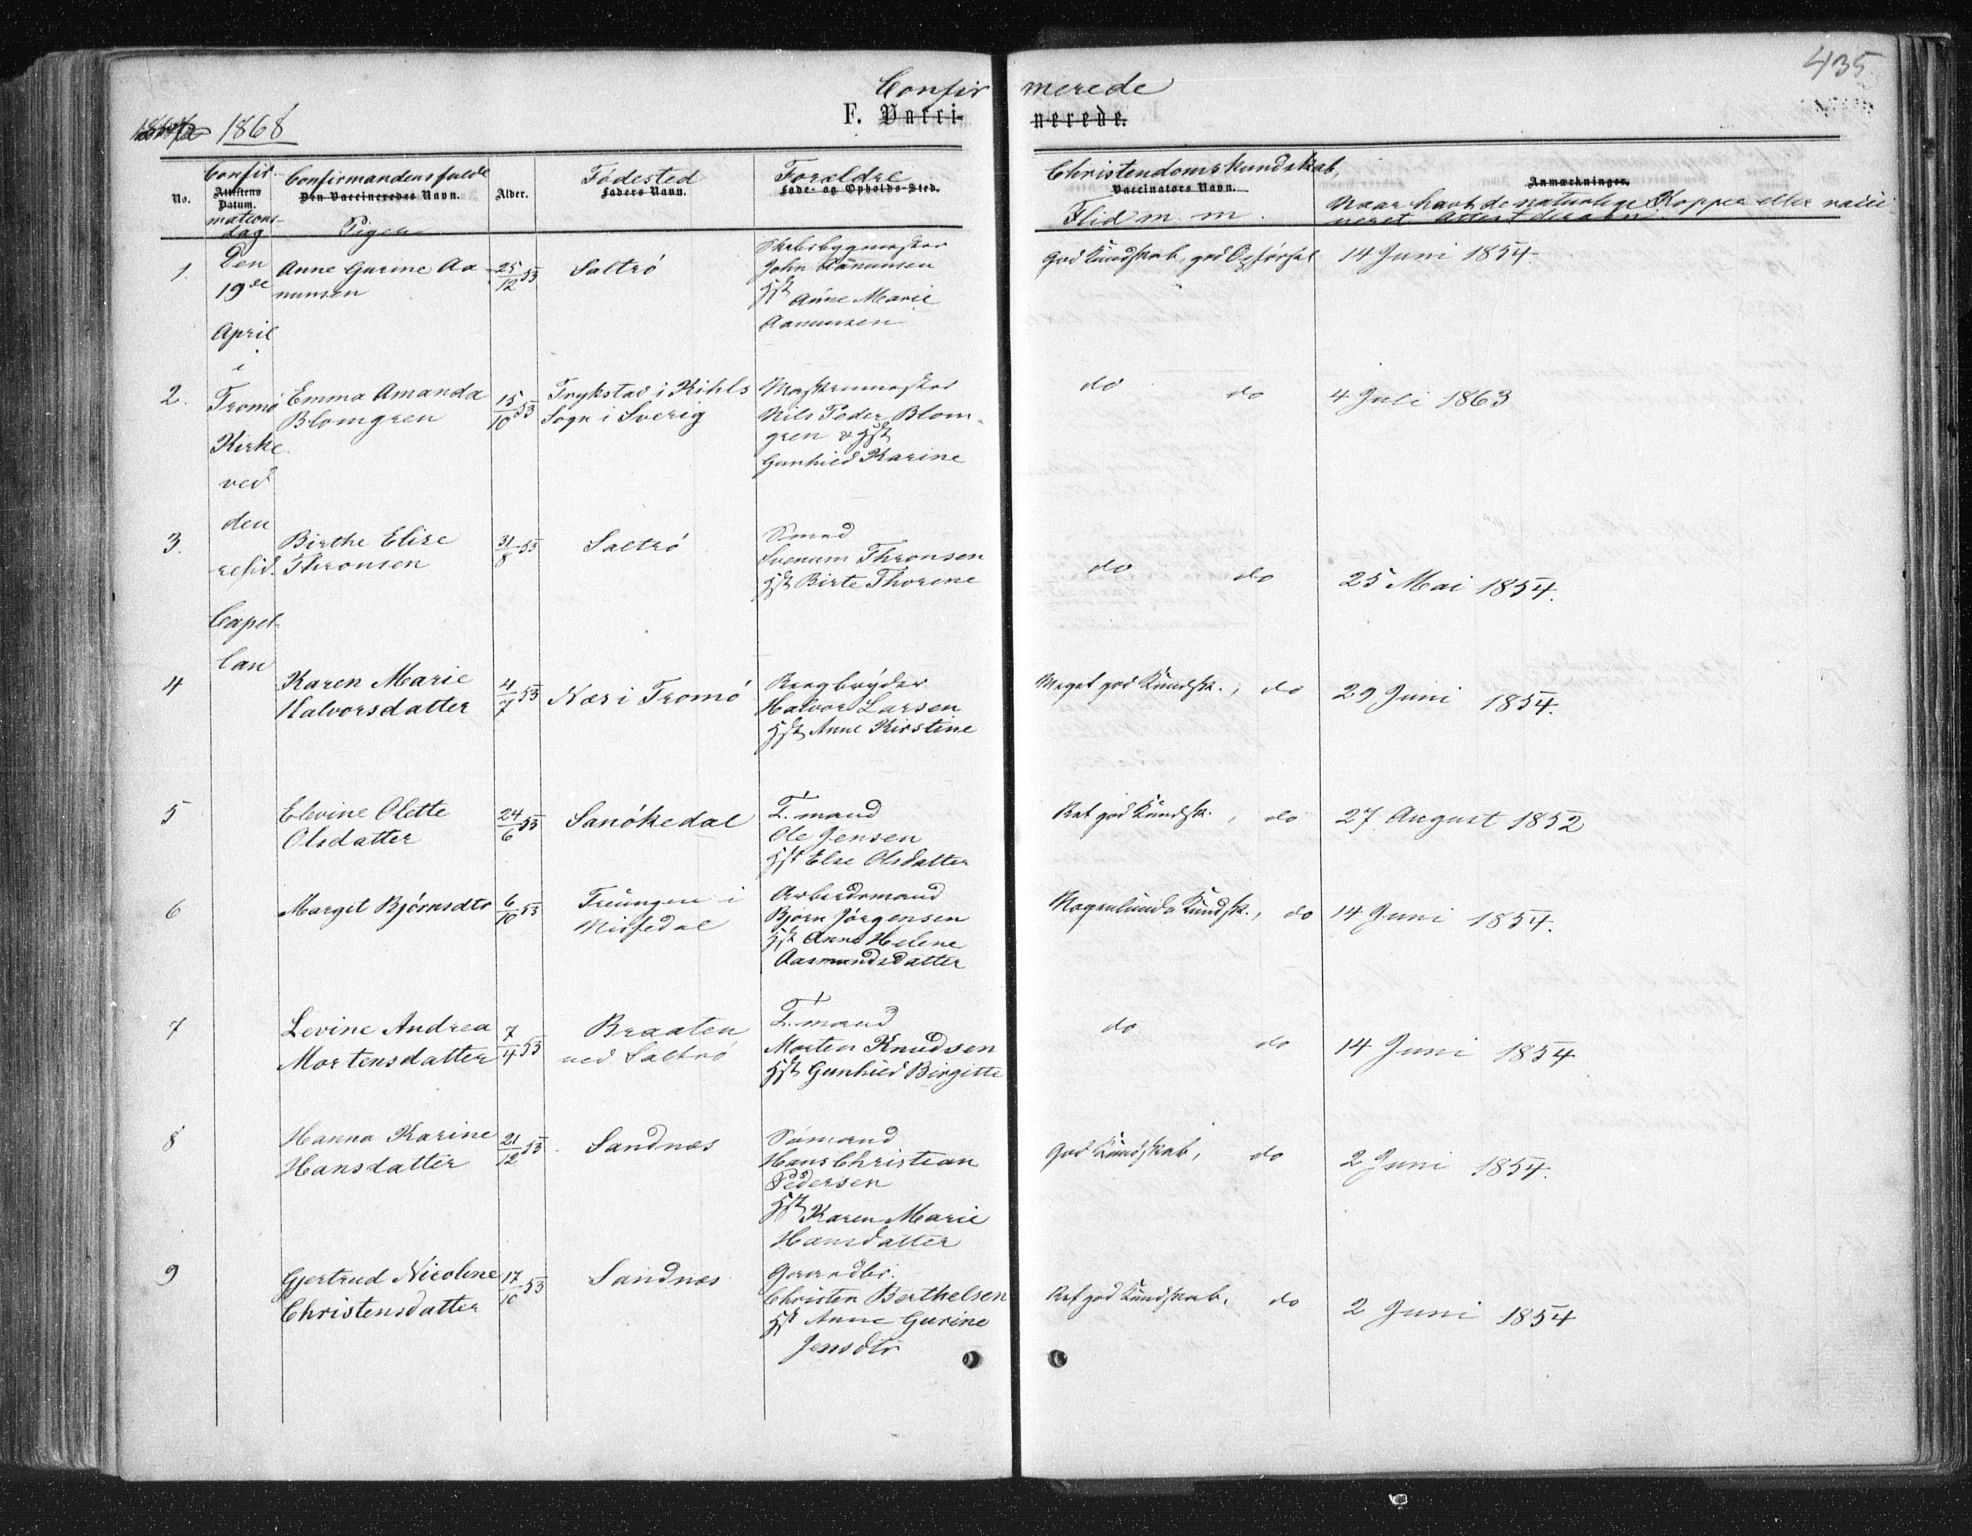 435
Confirmerede
F. Vaccinerede.
1868
No.
Confirmationsdag
Attestens Datum.
Confirmandens fulde
Den Vaccineredes Navn.
Piger
Alder.
Fødested
Faders Navn.
Forældre
Føde- og Opholds-Sted.
Christendomskundskab,
Vaccinators Navn.
Flid m. m.
Anmærkninger.
Naar havt de naturlige Kopper eller vacci
neret Attest derom
Den
19de
April
i
Tromø
Kirke
ved
den
resid.
Capel-
lan
1. Anne Gurine Aa
nunsen
25/12 53
Saltrø
Skibsbygmester
John Aanunsen
Hst Anne Marie
Aanunsen
God Kundskab, god Opførsel
14 Juni 1854.
2. Emma Amanda
Blomgren
15/10 53
Trykstad i Kihls
Sogn i Sverig
Maskinmester
Nils Peder Blom-
gren & Hst
Gunhild Karine
do do
4 Juli 1863
3. Birthe Elise
Thronsen
31/8 53
Saltrø
Smed
Svenum Thronsen
Hst Birte Thorine
do do
25 Mai 1854.
4 Karen Marie
Halvorsdatter
4/7 53
Næs i Tromø
Halvor Larsen
Hst Anne Kirstine
Meget god Kundsk., do
29 Juni 1854.
5 Elevine Olette
Olsdatter
24/6 53
Sanøkedal
T. mand
Ole Jensen
Hst Else Olsdatter
Ret god Kundsk., do
27 August 1852
6 Margit Bjørnsdtr
6/10 53
Treungen i
Missedal
Arbeidsmand
Bjørn Jørgensen
Hst Anne Helene
Aasmundsdatter
Nogenlunde Kundsk., do
14 Juni 1854.
7 Levine Andrea
Mortensdatter
7/4 53
Braaten
ved Saltrø
T. mand
Morten Knudsen
Hst Gunhild Birgitte
do do
14 Juni 1854
8 Hanna Karine
Hansdatter
21/12 53
Sandnæs
Sømand
Hans Christian
Pedersen
Hst Karen Marie
Hansdatter
God Kundskab, do
2 Juni 1854.
9 Gjertrud Nicoline
Christensdatter
17/10 53
Sandnæs
Gaardbr.
Christen Berthelsen
Hst Anne Gurine
Jensdtr
Ret god Kundskab, do
2 Juni 1854